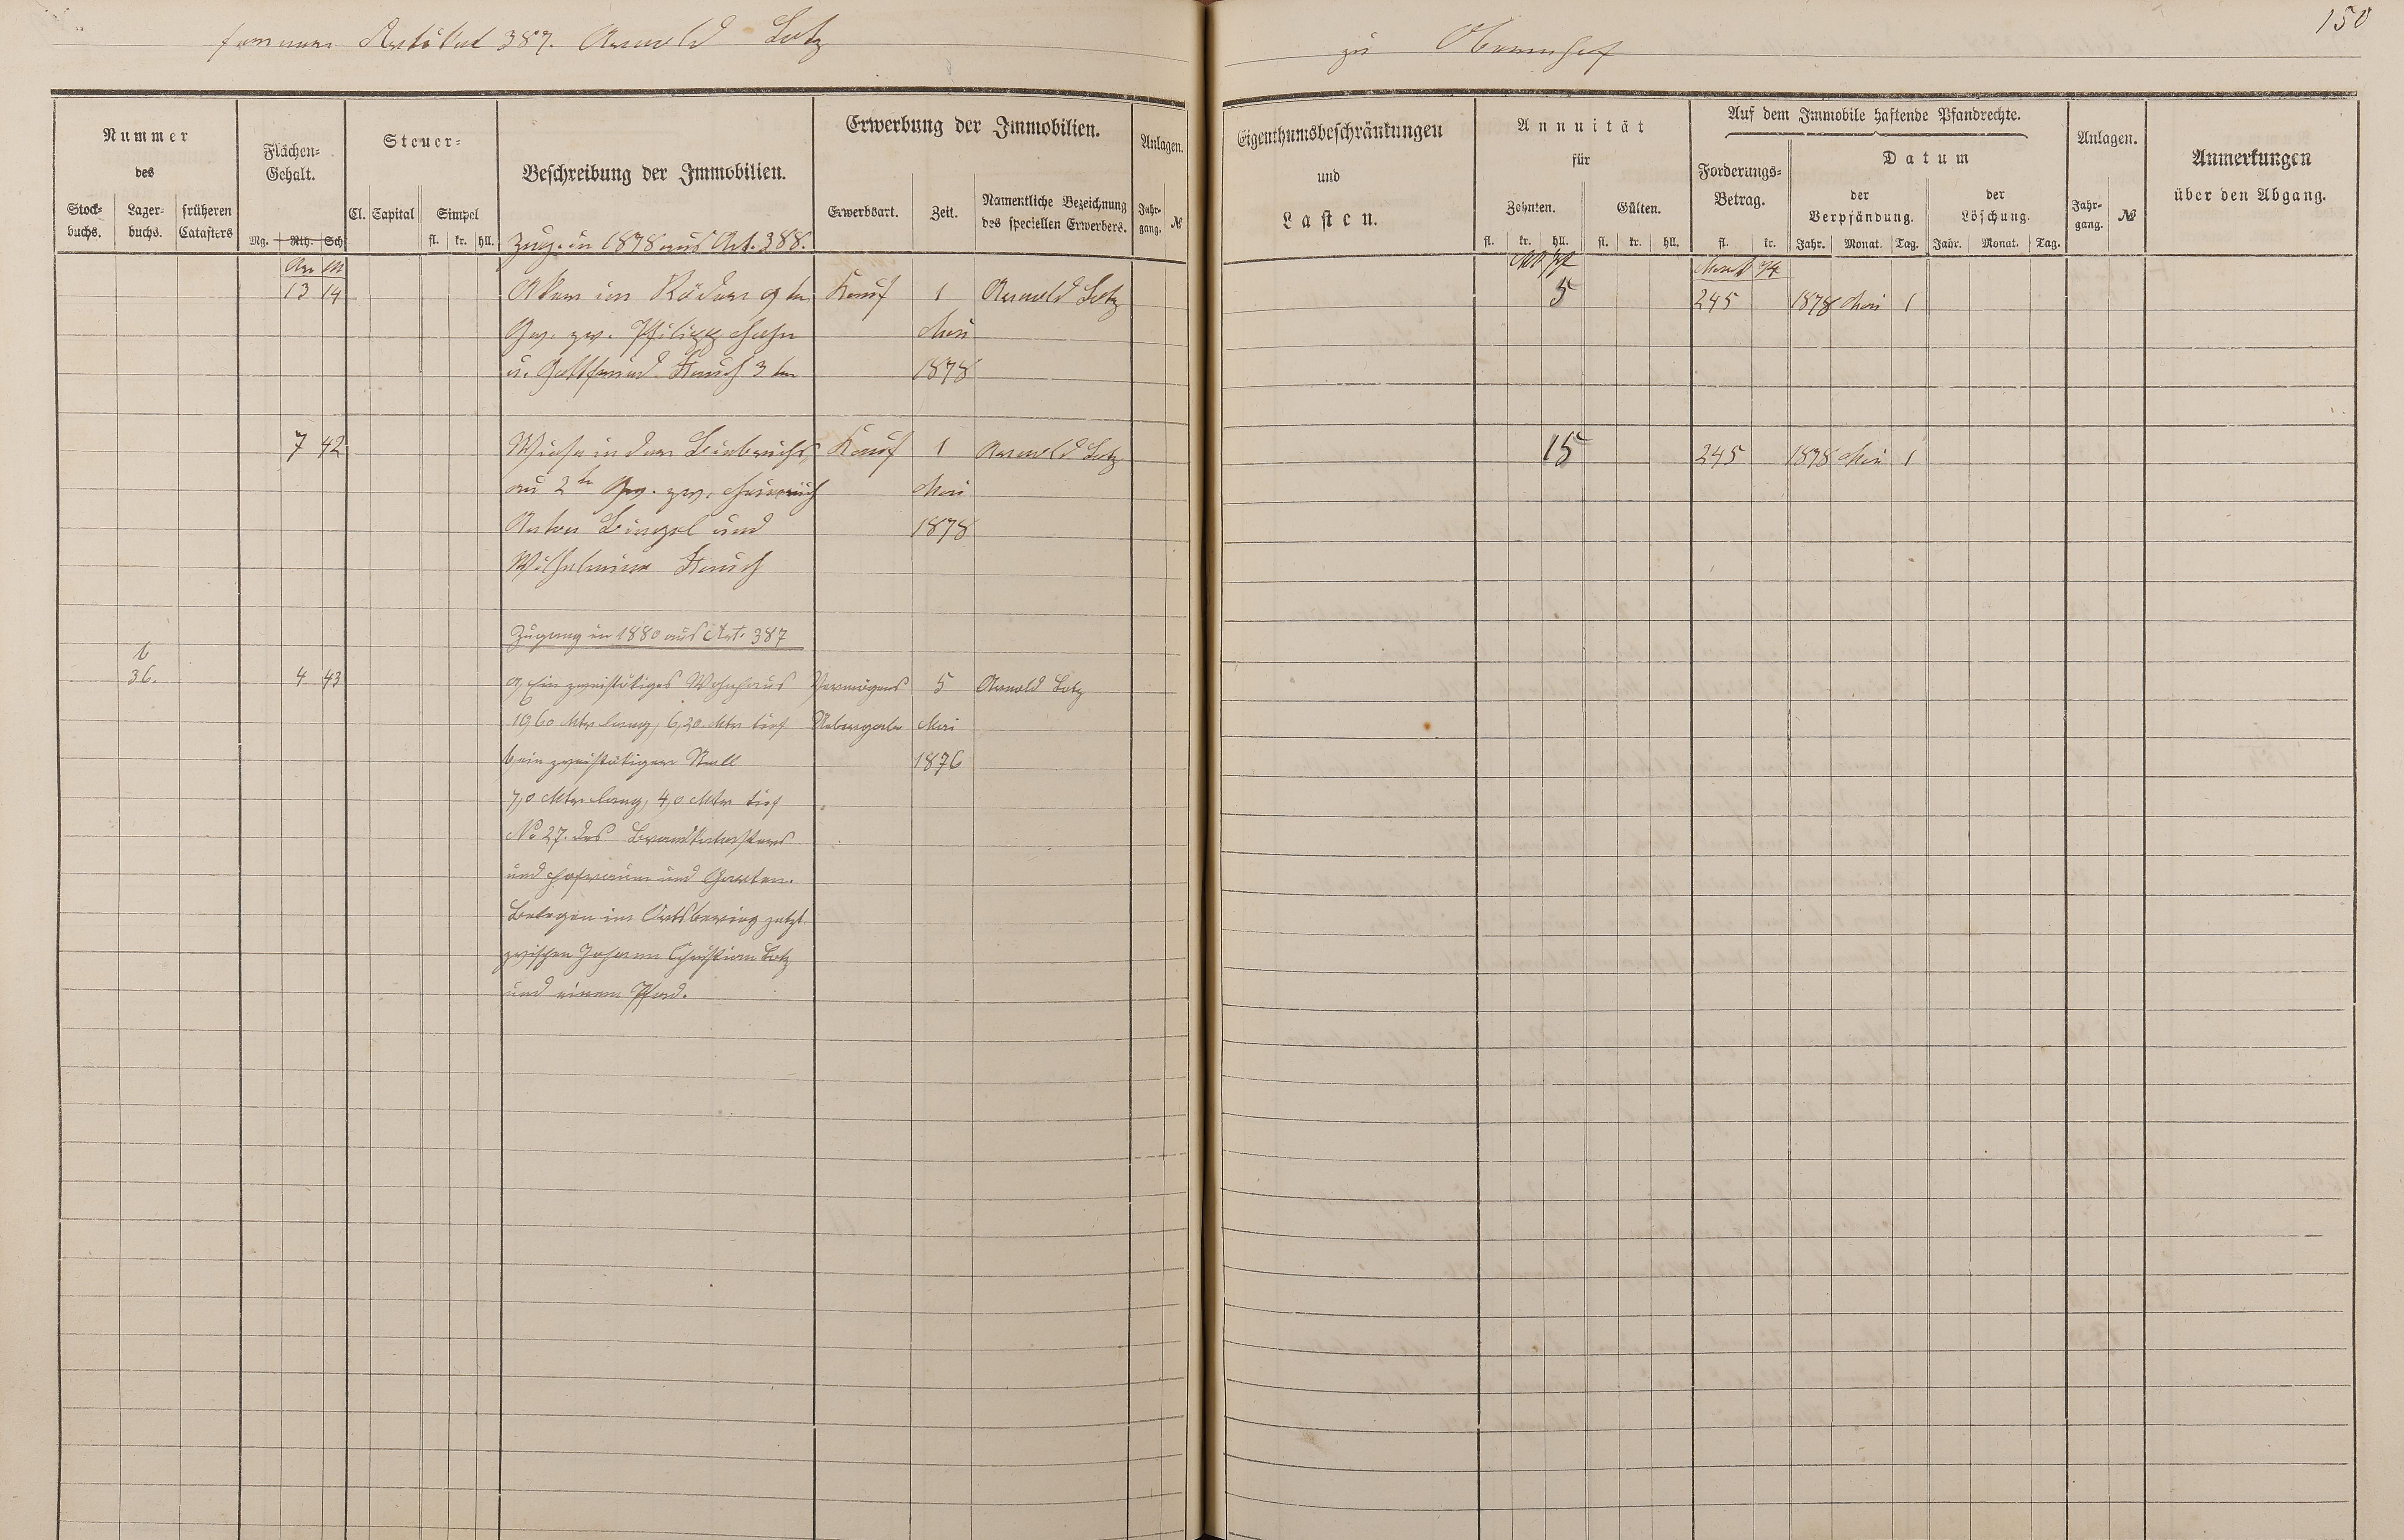 Artikel 387. Arnold Lotz
zu Obernhof
150
Nummer
des
Stock-
buchs.
Lager-
buchs.
früheren
Catasters
Flächen-
Gehalt.
Mg. Rth. Sch
Steuer-
Cl. Capital Simpel
fl. kr. hll.
Beschreibung der Immobilien.
Erwerbung der Immobilien.
Erwerbsart.
Zeit.
Namentliche Bezeichnung
des speciellen Erwerbers.
Anlagen.
Jahr-
gang.
№
Eigenthumsbeschränkungen
und
Lasten.
Annuität
für
Zehnten.
Gülten.
fl. kr. hll. fl. kr. hll.
Auf dem Immobile haftende Pfandrechte.
Forderungs-
Betrag.
fl. kr.
Datum
der
Verpfändung.
der
Löschung.
Jahr. Monat. Tag. Jahr. Monat. Tag.
Anlagen.
Jahr-
gang.
№
Anmerkungen
über den Abgang.
Zug. in 1878 aus Art. 388.
Ar M
13 14 Aker im Röder 9 tn Kauf 1 Arnold Lotz 5 245 1878 Mai 1
Gew. zw. Philipp Hahn Mai
u. Gottfried Strauch 3 tn 1878
7 42 Wiese in der Kauf 1 Arnold Lotz 15 245 1878 Mai 1
au 2tr Gew. zw. Heinrich Mai
Anton Bingel und 1878
Wilhelmine Strauch
Zugang in 1880 aus Art. 387
36. 4 43 a, Ein zweistökiges Wohnhaus Vermögens 5 Arnold Lotz
1960 Mtr lang, 6,20 Mtr tief Uebergabe Mai
b ein zweistökiger Stall 1876
7,0 Mtr lang, 4,0 Mtr tief
No 27. des Brandkatasters
und Hofraum und Garten.
Belegen im Ortsbering jetzt
zwischen Johann Christian Lotz
und einem Pfad.